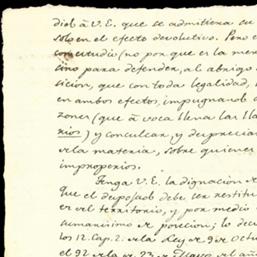 dió à V. E. que se admitiera su
solo en el efecto devolutivo. Pero e
con estudio (no por que es la mera
sino para defender, al abrigo
sicion, que con toda legalidad,
en ambos efectos, impugnando
zones (que à voca llena las lla
rios) y conculcar, y despreciar
à la materia, sobre quienes
improperios.
Tenga V. E. la dignacion
que el depojado debe ser restitui
en el territorio, y por medio
sumarisimo posecion; lo dec
los 12. Cap. 2. à la Ley 9 Octu
el 92 à la 23 Mayo el año